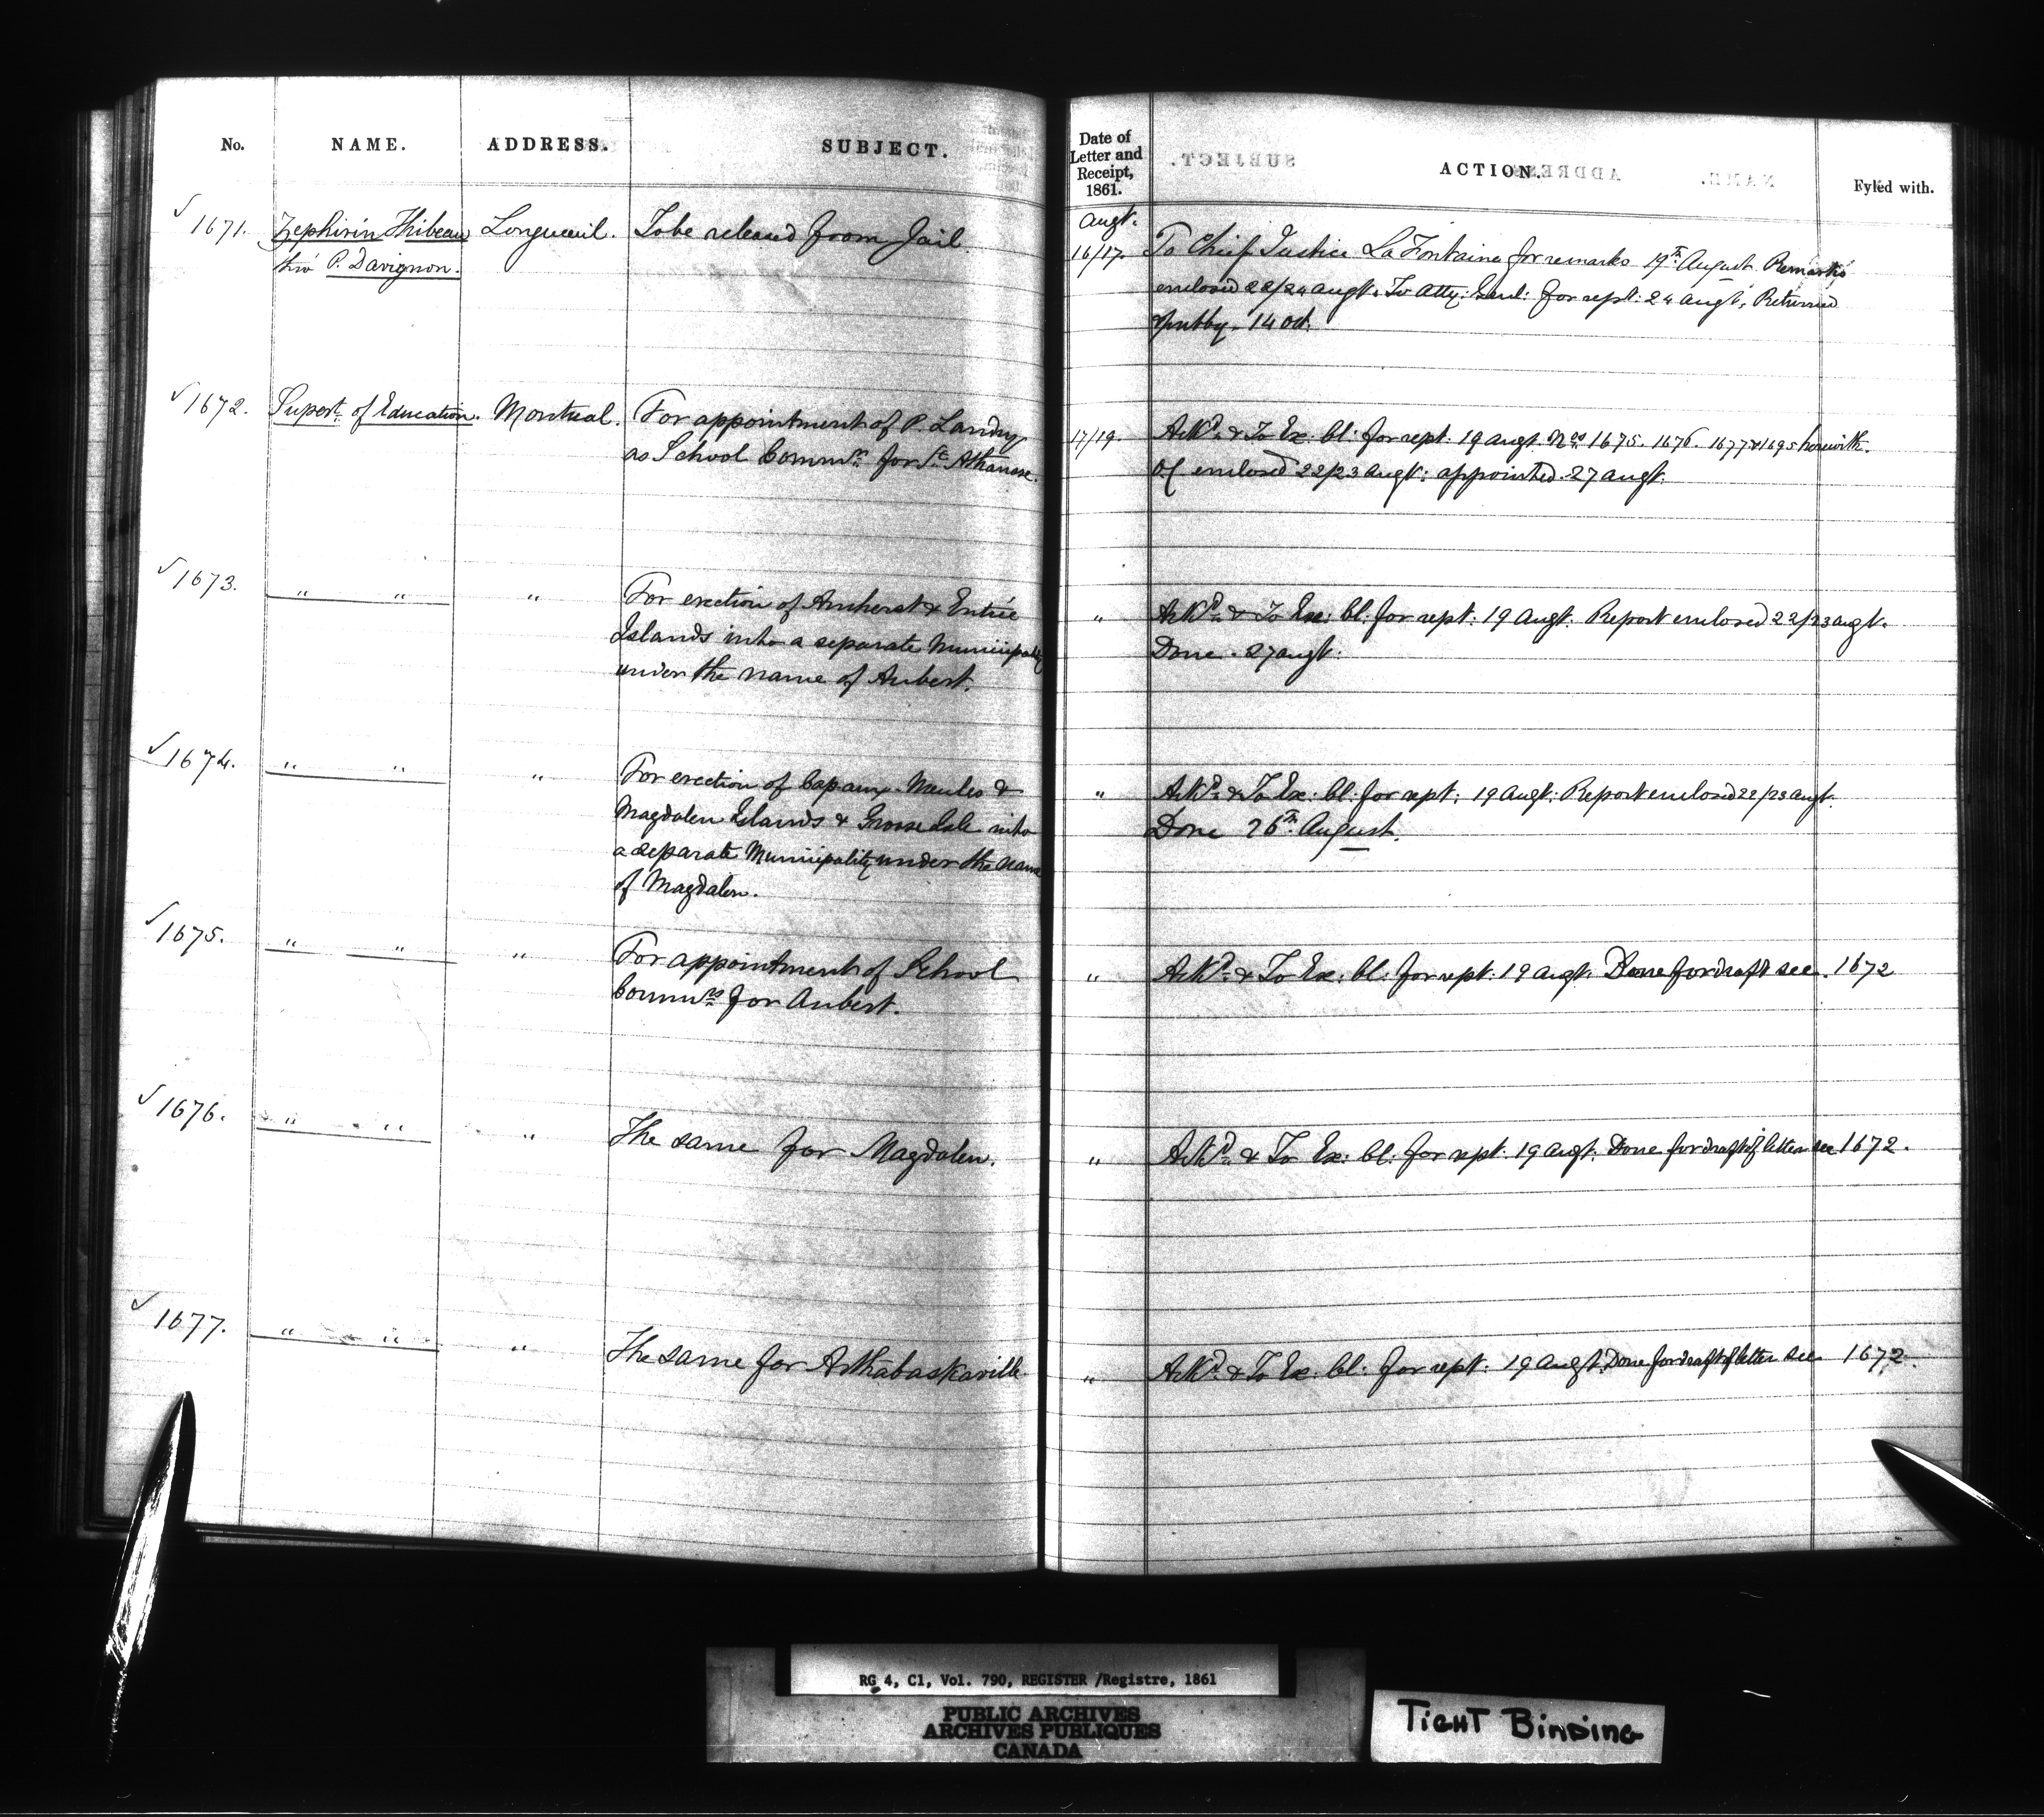 No. NAME. ADDRESS. SUBJECT.
✓ 1671. Zephirin Thibeau Longueuil. To be released from Jail
thro' P. Davignon.
✓ 1672. Supert. of Education. Montreal. For appointment of P. Landry
as School Commr. for St. Athanase.
✓ 1673. " " " For erection of Amherst & Entrée
Islands into a separate Municipality
under the name of Aubert.
✓ 1674. " " " For erection of Cap aux Meules &
Magdalen Islands & Grosse Isle into
a separate Municipality under the name
of Magdalen.
✓ 1675. " " " For appointment of School
Commrs. for Aubert.
✓ 1676. " " " The same for Magdalen.
✓ 1677. " " " The same for Arthabaskaville.
Date of
Letter and
Receipt,
1861.
ACTION. Fyled with.
Augt.
16/17. To Chief Justice LaFontaine for remarks 19th August. Remarks
enclosed 22/24 augt. To Atty: Genl: for rept: 24 augt. Returned
14 Oct.
17/19. Ackd. & To Ex: Cl: for rept: 19 augt. Nos 1675. 1676. 1677 & 1695 herewith.
OC enclosed 22/23 augt: appointed 27 augt.
" Ackd. & To Ex: Cl: for rept: 19 Augt. Report enclosed 22/23 augt.
Done. 27 augt.
" Ackd. & To Ex: Cl: for rept: 19 Augt: Report enclosed 22/23 augt.
Done 26th August.
" Ackd. & To Ex: Cl: for rept: 19 augt. Done for draft see. 1672
" Ackd. & To Ex: Cl: for rept: 19 augt. Done for draft of letter see 1672.
" Ackd. & To Ex: Cl: for rept: 19 augt. Done for draft of letter see 1672.
RG 4, C1, Vol. 790, REGISTER /Registre, 1861
PUBLIC ARCHIVES
ARCHIVES PUBLIQUES
CANADA
TIGHT BINDING